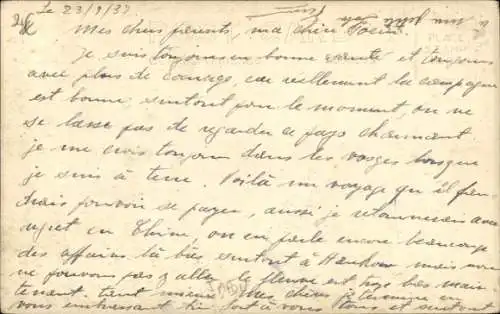 Le 23/9/32
Mes chers parents, ma chère Soeur
je suis toujours en bonne santé et toujours
avec plus de courage, car réellement la campagne
est bonne, surtout pour le moment, on ne
se lasse pas de regarder ce pays charmant
je me crois toujours dans les vosges lorsque
je suis à terre. Voilà un voyage qu'il faudrait
pouvoir se payer, aussi je retournerai avec
regret en Chine, on en parle encore beaucoup
des affaires là bas, surtout à Hankow mais nous
ne pouvons pas y aller le fleuve est trop bas maintenant.
tant mieux. Mes chers je termine en
vous embrassant bien fort à vous tous et surtout